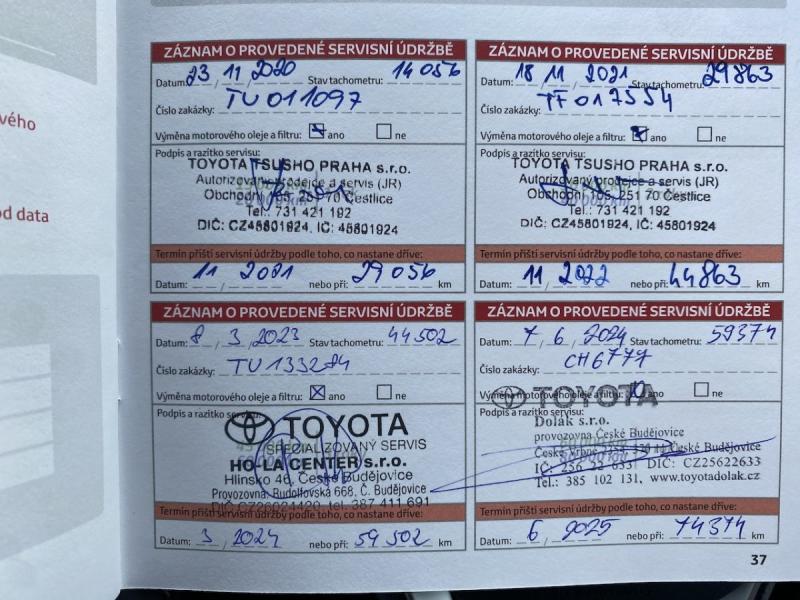 vého
od data
ZÁZNAM O PROVEDENÉ SERVISNÍ ÚDRŽBĚ
Datum: 23 / 11 / 2020 Stav tachometru: 14 056
Číslo zakázky: TU011097
Výměna motorového oleje a filtru: ano ne
Podpis a razítko servisu:
TOYOTA TSUSHO PRAHA s.r.o.
Autorizovaný prodejce a servis (JR)
Obchodní 105, 251 70 Čestlice
Tel.: 731 421 192
DIČ: CZ45801924, IČ: 45801924
Termín příští servisní údržby podle toho, co nastane dříve:
Datum: 11 / 2021 nebo při: 29 056 km
ZÁZNAM O PROVEDENÉ SERVISNÍ ÚDRŽBĚ
Datum: 18 / 11 / 2021 Stav tachometru: 29863
Číslo zakázky: TF017554
Výměna motorového oleje a filtru: ano ne
Podpis a razítko servisu:
TOYOTA TSUSHO PRAHA s.r.o.
Autorizovaný prodejce a servis (JR)
Obchodní 105, 251 70 Čestlice
Tel.: 731 421 192
DIČ: CZ45801924, IČ: 45801924
Termín příští servisní údržby podle toho, co nastane dříve:
Datum: 11 / 2022 nebo při: 44863 km
ZÁZNAM O PROVEDENÉ SERVISNÍ ÚDRŽBĚ
Datum: 8 / 3 / 2023 Stav tachometru: 44502
Číslo zakázky: TU133284
Výměna motorového oleje a filtru: ano ne
Podpis a razítko servisu:
TOYOTA
SPECIALIZOVANÝ SERVIS
HO-LA CENTER s.r.o.
Hlinsko 46, České Budějovice
Provozovna, Rudolfovská 668, Č. Budějovice
tel. 387 411 691
Termín příští servisní údržby podle toho, co nastane dříve:
Datum: 3 / 2024 nebo při: 59502 km
ZÁZNAM O PROVEDENÉ SERVISNÍ ÚDRŽBĚ
Datum: 7 / 6 / 2024 Stav tachometru: 59374
Číslo zakázky: CH6777
Výměna motorového oleje a filtru: ano ne
TOYOTA
Podpis a razítko servisu:
Dolák s.r.o.
provozovna České Budějovice
České Vrbné 2327, České Budějovice
IČ: 256 22 633 DIČ: CZ25622633
Tel.: 385 102 131, www.toyotadolak.cz
Termín příští servisní údržby podle toho, co nastane dříve:
Datum: 6 / 2025 nebo při: 74374 km
37